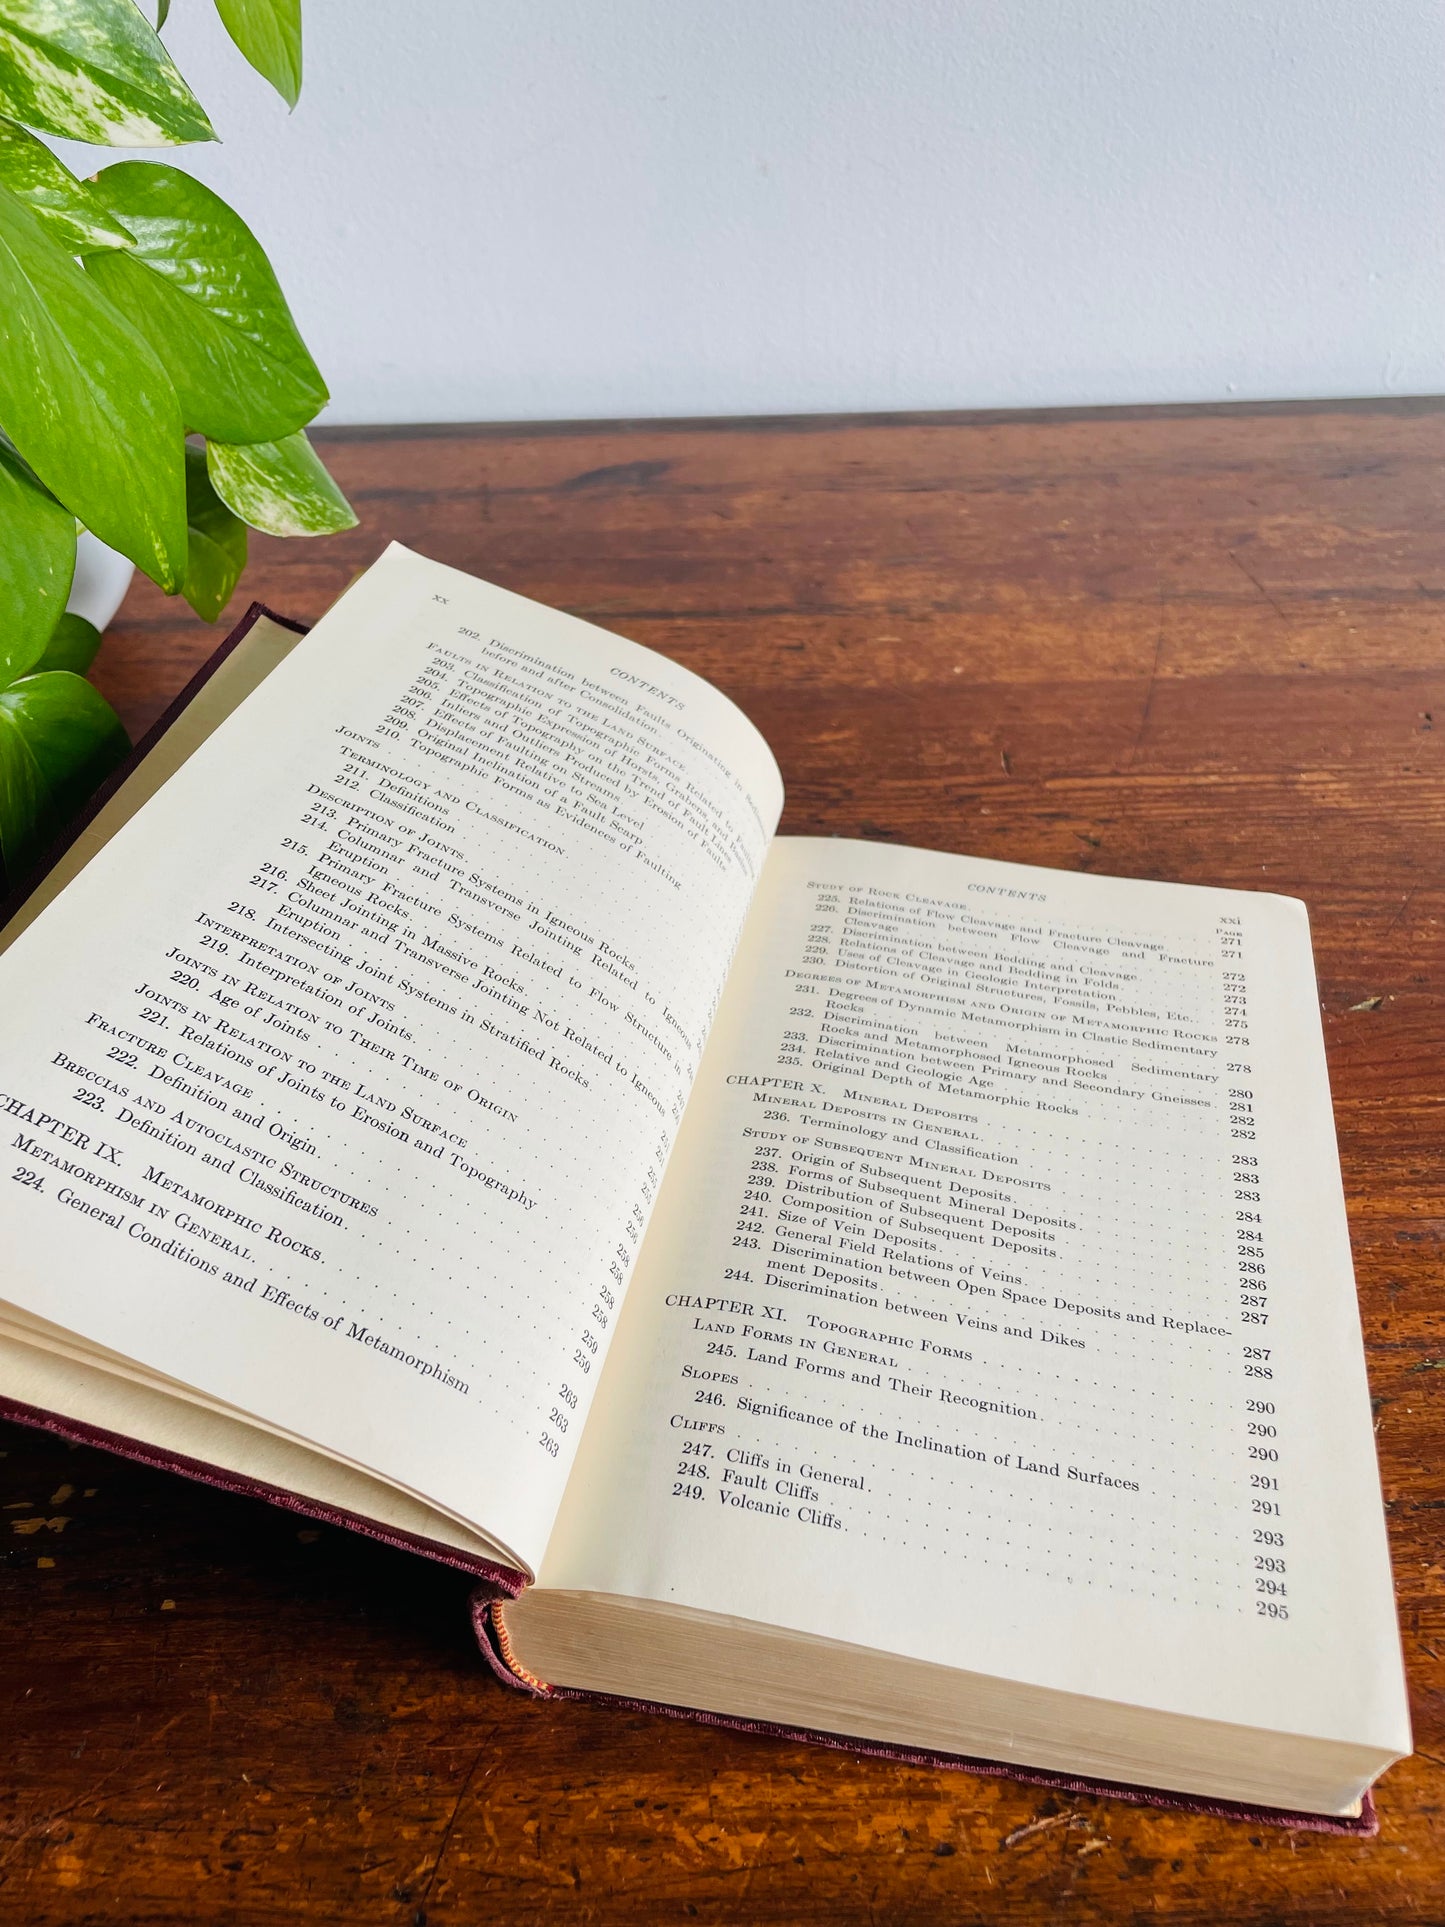 xx
CONTENTS
202. Discrimination between Faults Originating in
before and after Consolidation
FAULTS IN RELATION TO THE LAND SURFACE
203. Classification of Topographic Forms Related to Faulting
204. Topographic Expression of Horsts, Grabens, and Basins
205. Effects of Topography on the Trend of Fault Lines
206. Inliers and Outliers Produced by Erosion of Faults
207. Effects of Faulting on Streams
208. Displacement Relative to Sea Level
209. Original Inclination of a Fault Scarp
210. Topographic Forms as Evidences of Faulting
JOINTS
TERMINOLOGY AND CLASSIFICATION
211. Definitions
212. Classification
DESCRIPTION OF JOINTS
213. Primary Fracture Systems in Igneous Rocks
214. Columnar and Transverse Jointing Related to Igneous
Eruption
215. Primary Fracture Systems Related to Flow Structure in
Igneous Rocks
216. Sheet Jointing in Massive Rocks
217. Columnar and Transverse Jointing Not Related to Igneous
Eruption
218. Intersecting Joint Systems in Stratified Rocks
INTERPRETATION OF JOINTS
219. Interpretation of Joints
JOINTS IN RELATION TO THEIR TIME OF ORIGIN 256
220. Age of Joints 256
JOINTS IN RELATION TO THE LAND SURFACE 258
221. Relations of Joints to Erosion and Topography 258
FRACTURE CLEAVAGE 258
222. Definition and Origin 258
BRECCIAS AND AUTOCLASTIC STRUCTURES 259
223. Definition and Classification 259
CHAPTER IX. METAMORPHIC ROCKS 263
METAMORPHISM IN GENERAL 263
224. General Conditions and Effects of Metamorphism 263
CONTENTS
xxi
PAGE
STUDY OF ROCK CLEAVAGE 271
225. Relations of Flow Cleavage and Fracture Cleavage 271
226. Discrimination between Flow Cleavage and Fracture
Cleavage 272
227. Discrimination between Bedding and Cleavage 272
228. Relations of Cleavage and Bedding in Folds 273
229. Uses of Cleavage in Geologic Interpretation 274
230. Distortion of Original Structures, Fossils, Pebbles, Etc. 275
DEGREES OF METAMORPHISM AND ORIGIN OF METAMORPHIC ROCKS 278
231. Degrees of Dynamic Metamorphism in Clastic Sedimentary
Rocks 278
232. Discrimination between Metamorphosed Sedimentary
Rocks and Metamorphosed Igneous Rocks 280
233. Discrimination between Primary and Secondary Gneisses 281
234. Relative and Geologic Age 282
235. Original Depth of Metamorphic Rocks 282
CHAPTER X. MINERAL DEPOSITS 283
MINERAL DEPOSITS IN GENERAL 283
236. Terminology and Classification 283
STUDY OF SUBSEQUENT MINERAL DEPOSITS 284
237. Origin of Subsequent Deposits 284
238. Forms of Subsequent Mineral Deposits 285
239. Distribution of Subsequent Deposits 286
240. Composition of Subsequent Deposits 286
241. Size of Vein Deposits 287
242. General Field Relations of Veins 287
243. Discrimination between Open Space Deposits and Replace-
ment Deposits 287
244. Discrimination between Veins and Dikes 288
CHAPTER XI. TOPOGRAPHIC FORMS 290
LAND FORMS IN GENERAL 290
245. Land Forms and Their Recognition 290
SLOPES 291
246. Significance of the Inclination of Land Surfaces 291
CLIFFS 293
247. Cliffs in General 293
248. Fault Cliffs 294
249. Volcanic Cliffs 295